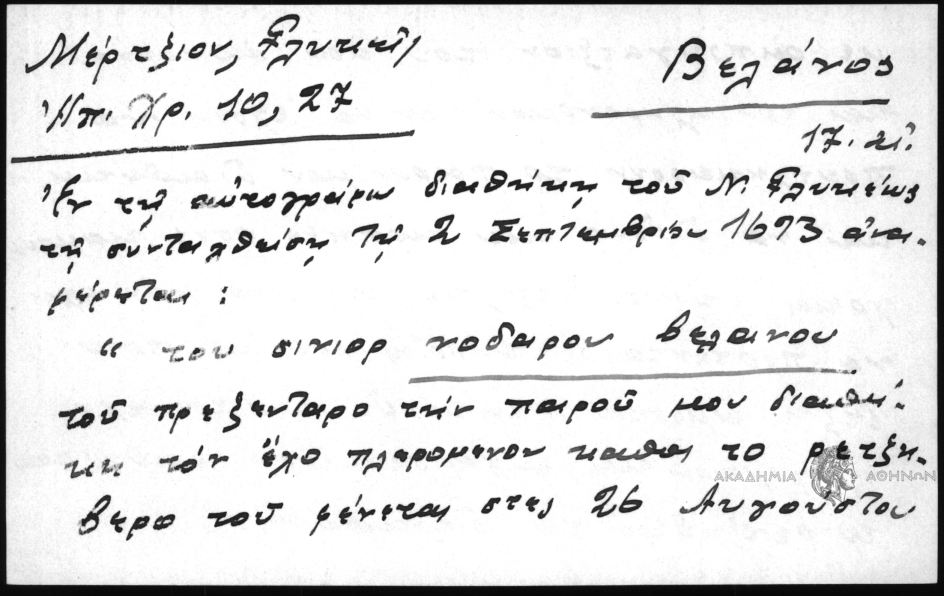 Μέρτζιον, Γλυκεῖς
Βελάνος
Ἠπ. Χρ. 10, 27
17. αἰ.
Ἐν τῇ αὐτογράφῳ διαθήκῃ τοῦ Ν. Γλυκέως
τῇ συνταχθείσῃ τῇ 2 Σεπτεμβρίου 1693 ἀνα-
φέρεται :
" του σινιορ νοδαρου βελανου
τοῦ πρεζενταρο τὴν παροῦ μου διαθή-
κη τόν ἔχο πλερομενον καθα το ρετζη-
βερο τοῦ φένεται στες 26 Αυγουστου
ΑΚΑΔΗΜΙΑ ΑΘΗΝΩΝ